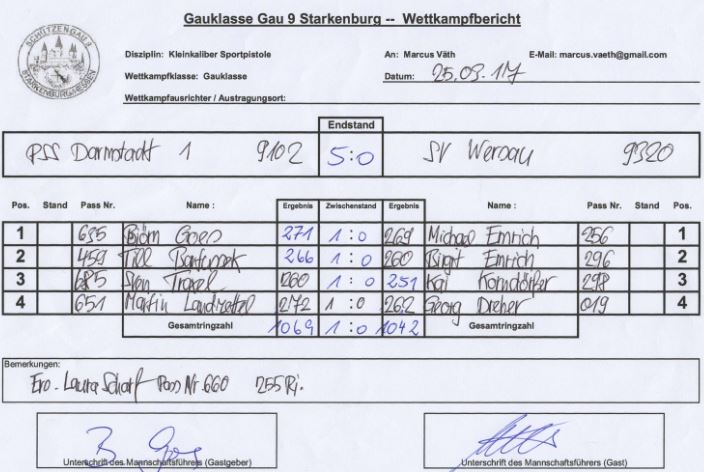 Gauklasse Gau 9 Starkenburg -- Wettkampfbericht
SCHÜTZENGAU 9
STARKENBURG/HESSEN
Disziplin: Kleinkaliber Sportpistole An: Marcus Väth E-Mail: marcus.vaeth@gmail.com
Wettkampfklasse: Gauklasse Datum: 25.03.17
Wettkampfausrichter / Austragungsort:
Endstand
PSS Darmstadt 1 9102 5:0 SV Wersau 9320
Pos. Stand Pass Nr. Name : Ergebnis Zwischenstand Ergebnis Name : Pass Nr. Stand Pos.
1 635 Björn Goes 271 1 : 0 269 Michael Emrich 256 1
2 459 Till 266 1 : 0 260 Birgit Emrich 296 2
3 685 Sven 260 1 : 0 251 Kai Korndörfer 298 3
4 651 Martin 272 1 : 0 262 Georg Dreher 019 4
Gesamtringzahl 1069 1 : 0 1042 Gesamtringzahl
Bemerkungen:
Laura Scharf Pass Nr. 660 255 Ri.
Unterschrift des Mannschaftsführers (Gastgeber) Unterschrift des Mannschaftsführers (Gast)